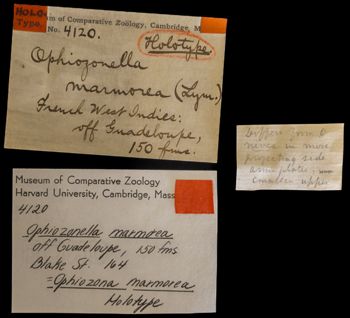 HOLO-
Type.
m of Comparative Zoölogy, Cambridge, M
No. 4120.
Holotype.
Ophiozonella
marmorea (Lym.)
French West Indies:
off Guadeloupe,
150 fms.
Differs from O
nivea in more
projecting side
arm plates;
smaller upper
Museum of Comparative Zoology
Harvard University, Cambridge, Mass
4120
Ophiozonella marmorea
off Guadeloupe, 150 fms
Blake St. 164
=Ophiozona marmorea
Holotype